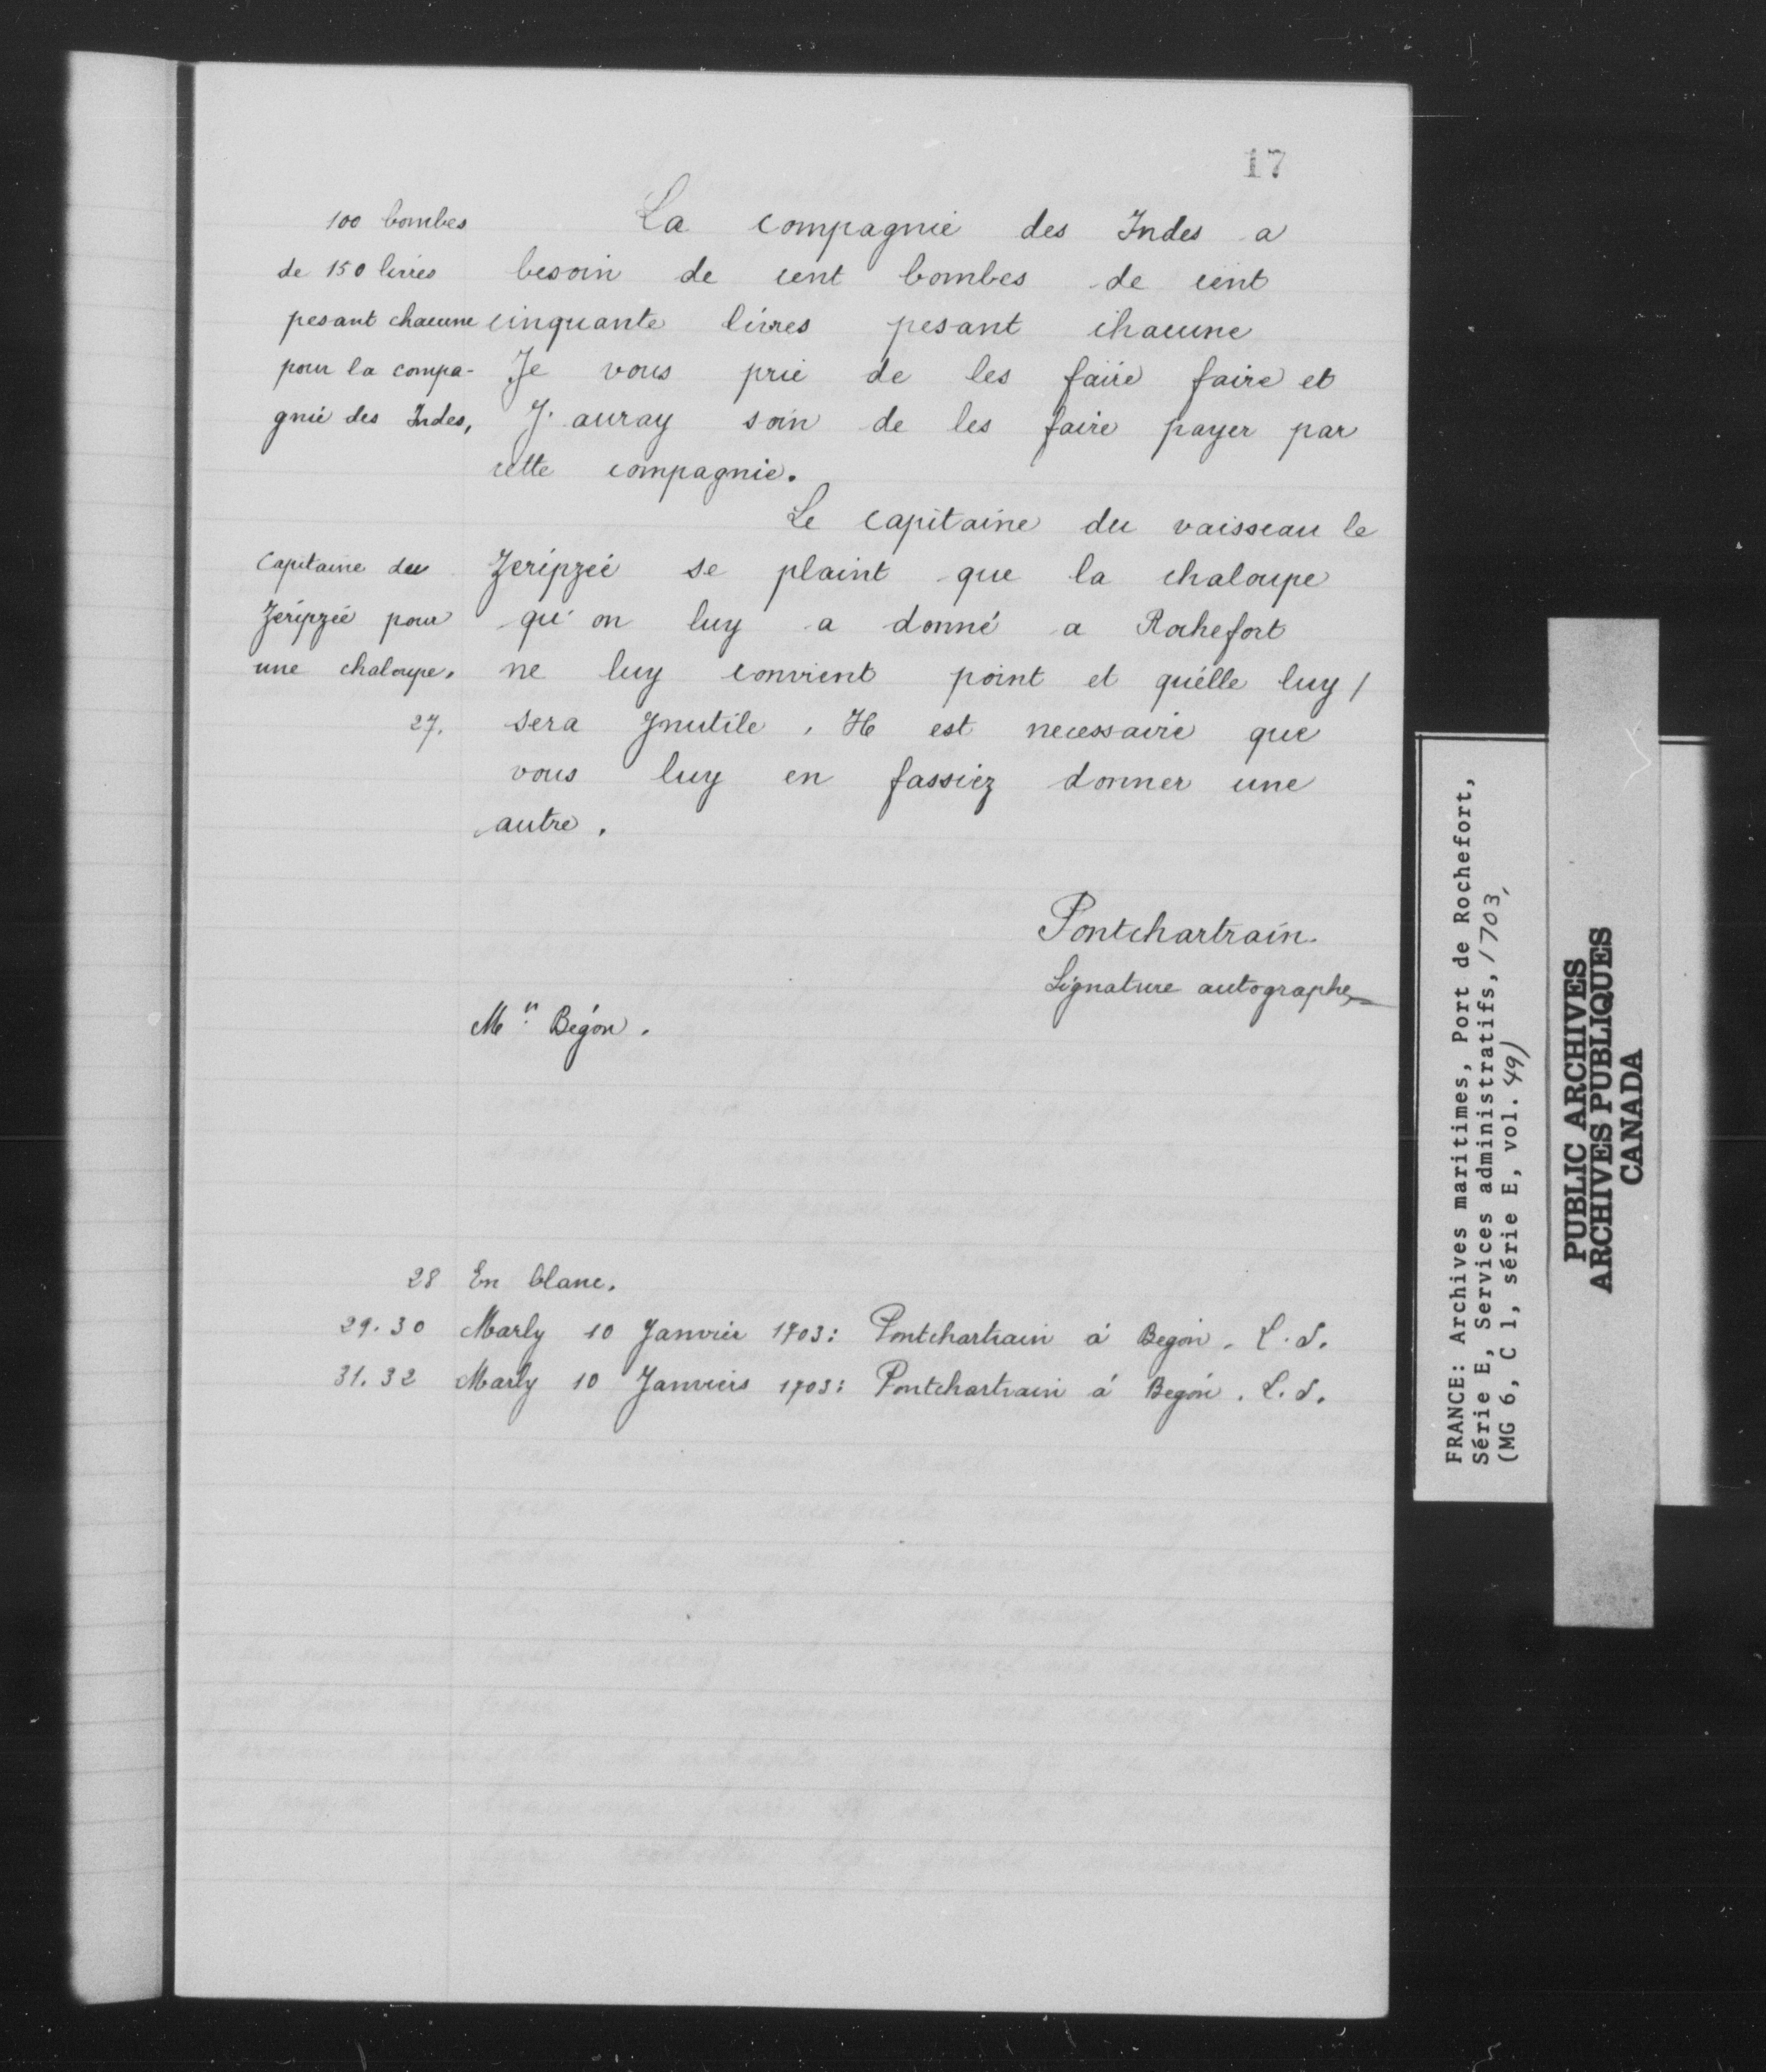 17
100 bombes
de 150 livres
pesant chacune
pour la compa-
gnie des Indes,
La compagnie des Indes a
besoin de cent bombes de cent
cinquante livres pesant chacune
Je vous prie de les faire faire et
J'auray soin de les faire payer par
cette compagnie.
Capitaine du
Zeripzée pour
une chaloupe.
27.
Le capitaine du vaisseau le
Zeripzée se plaint que la chaloupe
qu'on luy a donné a Rochefort
ne luy convient point et qu'elle luy /
sera Jnutile, Il est necessaire que
vous luy en fassiez donner une
autre.
Pontchartrain.
Signature autographe
Mr. Bégon.
28 En blanc.
29.30 Marly 10 Janvier 1703: Pontchartrain á Begon. L.S.
31.32 Marly 10 Janviers 1703: Pontchartrain á Begón. L.S.
FRANCE: Archives maritimes, Port de Rochefort,
Série E, Services administratifs, 1703,
(MG 6, C 1, série E, vol. 49)
PUBLIC ARCHIVES
ARCHIVES PUBLIQUES
CANADA